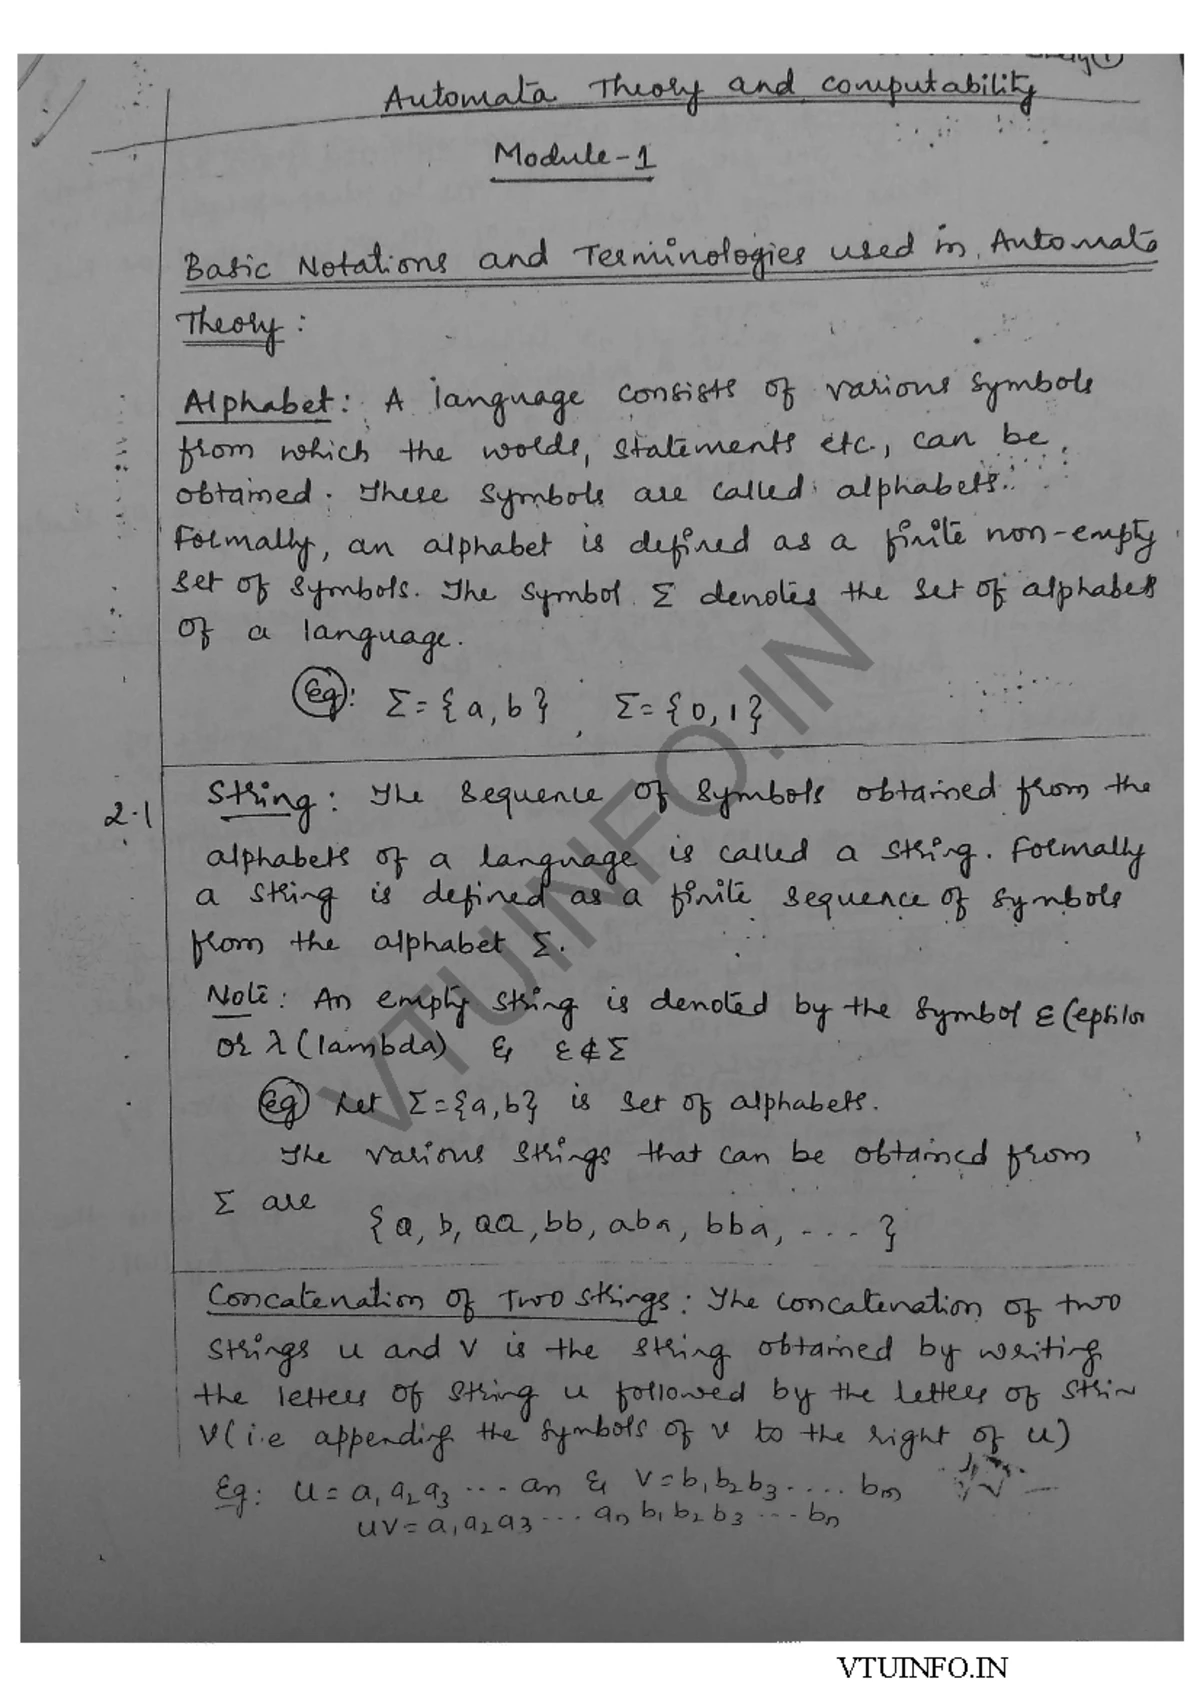 Automata Theory and computability
Module-1
Basic Notations and Terminologies used in Automata
Theory:
Alphabet: A language consists of various symbols
from which the words, statements etc., can be
obtained. These symbols are called alphabets.
Formally, an alphabet is defined as a finite non-empty
set of symbols. The symbol Σ denotes the set of alphabets
of a language.
Eg: Σ={a,b}, Σ={0,1}
2.1
String: The sequence of symbols obtained from the
alphabets of a language is called a string. Formally
a string is defined as a finite sequence of symbols
from the alphabet Σ.
Note: An empty string is denoted by the symbol ε(epsilon
or λ(lambda) & ε∉Σ
Eg Let Σ={a,b} is set of alphabets.
The various strings that can be obtained from
Σ are {a, b, aa, bb, aba, bba, .... }
Concatenation of Two strings: The concatenation of two
strings u and v is the string obtained by writing
the letters of string u followed by the letters of strin
v(i.e appending the symbols of v to the right of u)
Eg: u=a₁a₂a₃ ... an & v=b₁b₂b₃ .... bm
uv=a₁a₂a₃ ... an b₁b₂b₃ ... bn
VTUINFO.IN
VTUINFO.IN